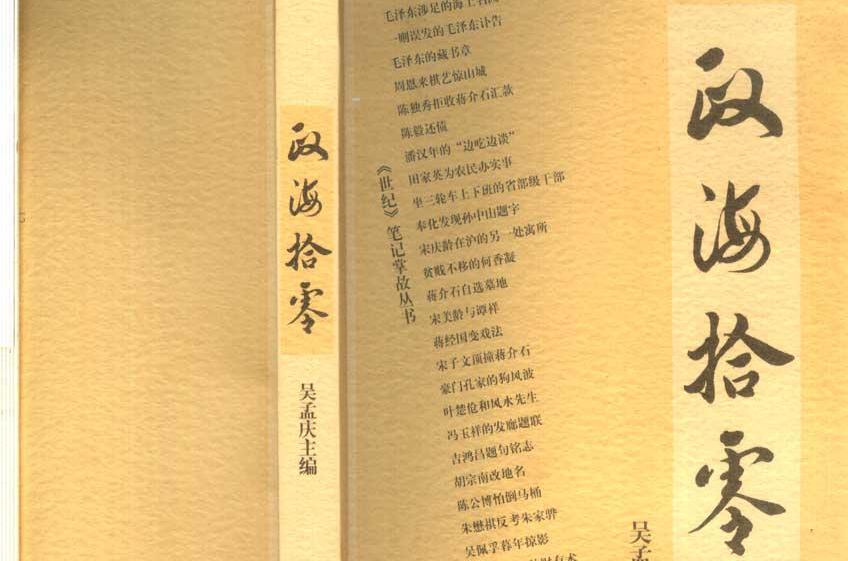 政海拾零
吴孟庆主编
毛泽东涉足的海上名园
一则误发的毛泽东讣告
毛泽东的藏书章
周恩来棋艺惊山城
陈独秀拒收蒋介石汇款
陈毅还债
潘汉年的“边吃边谈”
田家英为农民办实事
坐三轮车上下班的省部级干部
奉化发现孙中山题字
宋庆龄在沪的另一处寓所
贫贱不移的何香凝
蒋介石自选墓地
宋美龄与谭祥
蒋经国变戏法
宋子文顶撞蒋介石
豪门孔家的狗风波
叶楚伧和风水先生
冯玉祥的发廊题联
吉鸿昌题句铭志
胡宗南改地名
陈公博怕倒马桶
朱懋祺反考朱家骅
吴佩孚暮年掠影
《世纪》笔记掌故丛书
政海拾零
吴孟